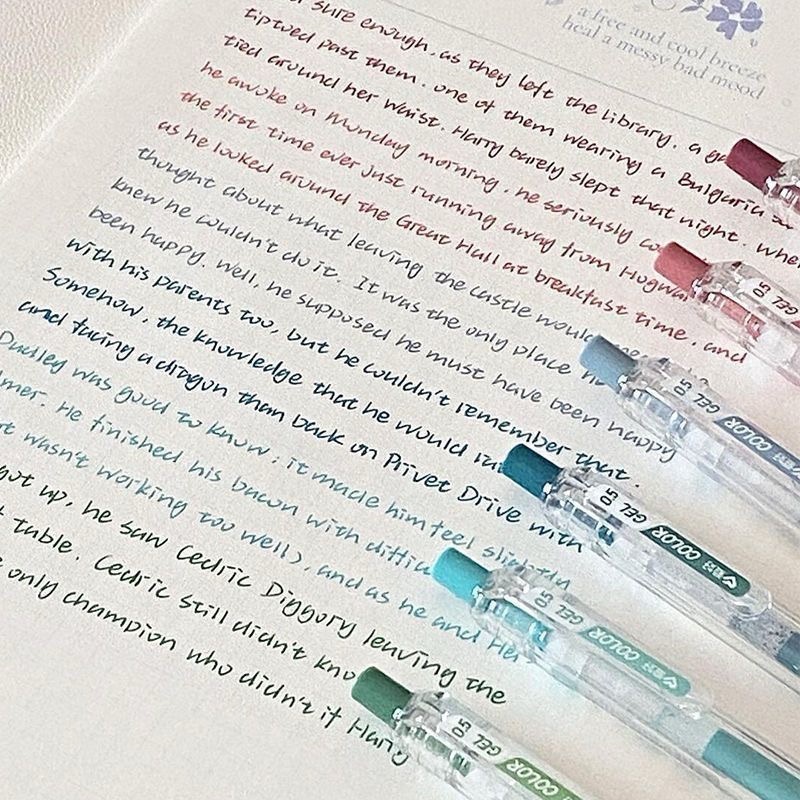 a free and cool breeze
heal a messy bad mood
sure enough, as they left the library, a
tiptoed past them. one of them wearing a Bulgaria
tied around her waist. Harry barely slept that night. When
he awoke on Monday morning, he seriously
the first time ever just running away from Hogwa
as he looked around the Great Hall at breakfast time, and
thought about what leaving the castle would
knew he couldn't do it. It was the only place
been happy. Well, he supposed he must have been happy
with his parents too, but he couldn't remember that.
Somehow, the knowledge that he would
and facing a dragon than back on Privet Drive with
Dudley was good to know; it made him feel slightly
He finished his bacon with
wasn't working too well), and as he and Her
got up, he saw Cedric Diggory leaving the
table. Cedric still didn't kno
only champion who didn't if Harry
GEL 0.5
GEL 0.5 COLOR
GEL 0.5 COLOR
GEL 0.5 COLOR
GEL 0.5 COLOR